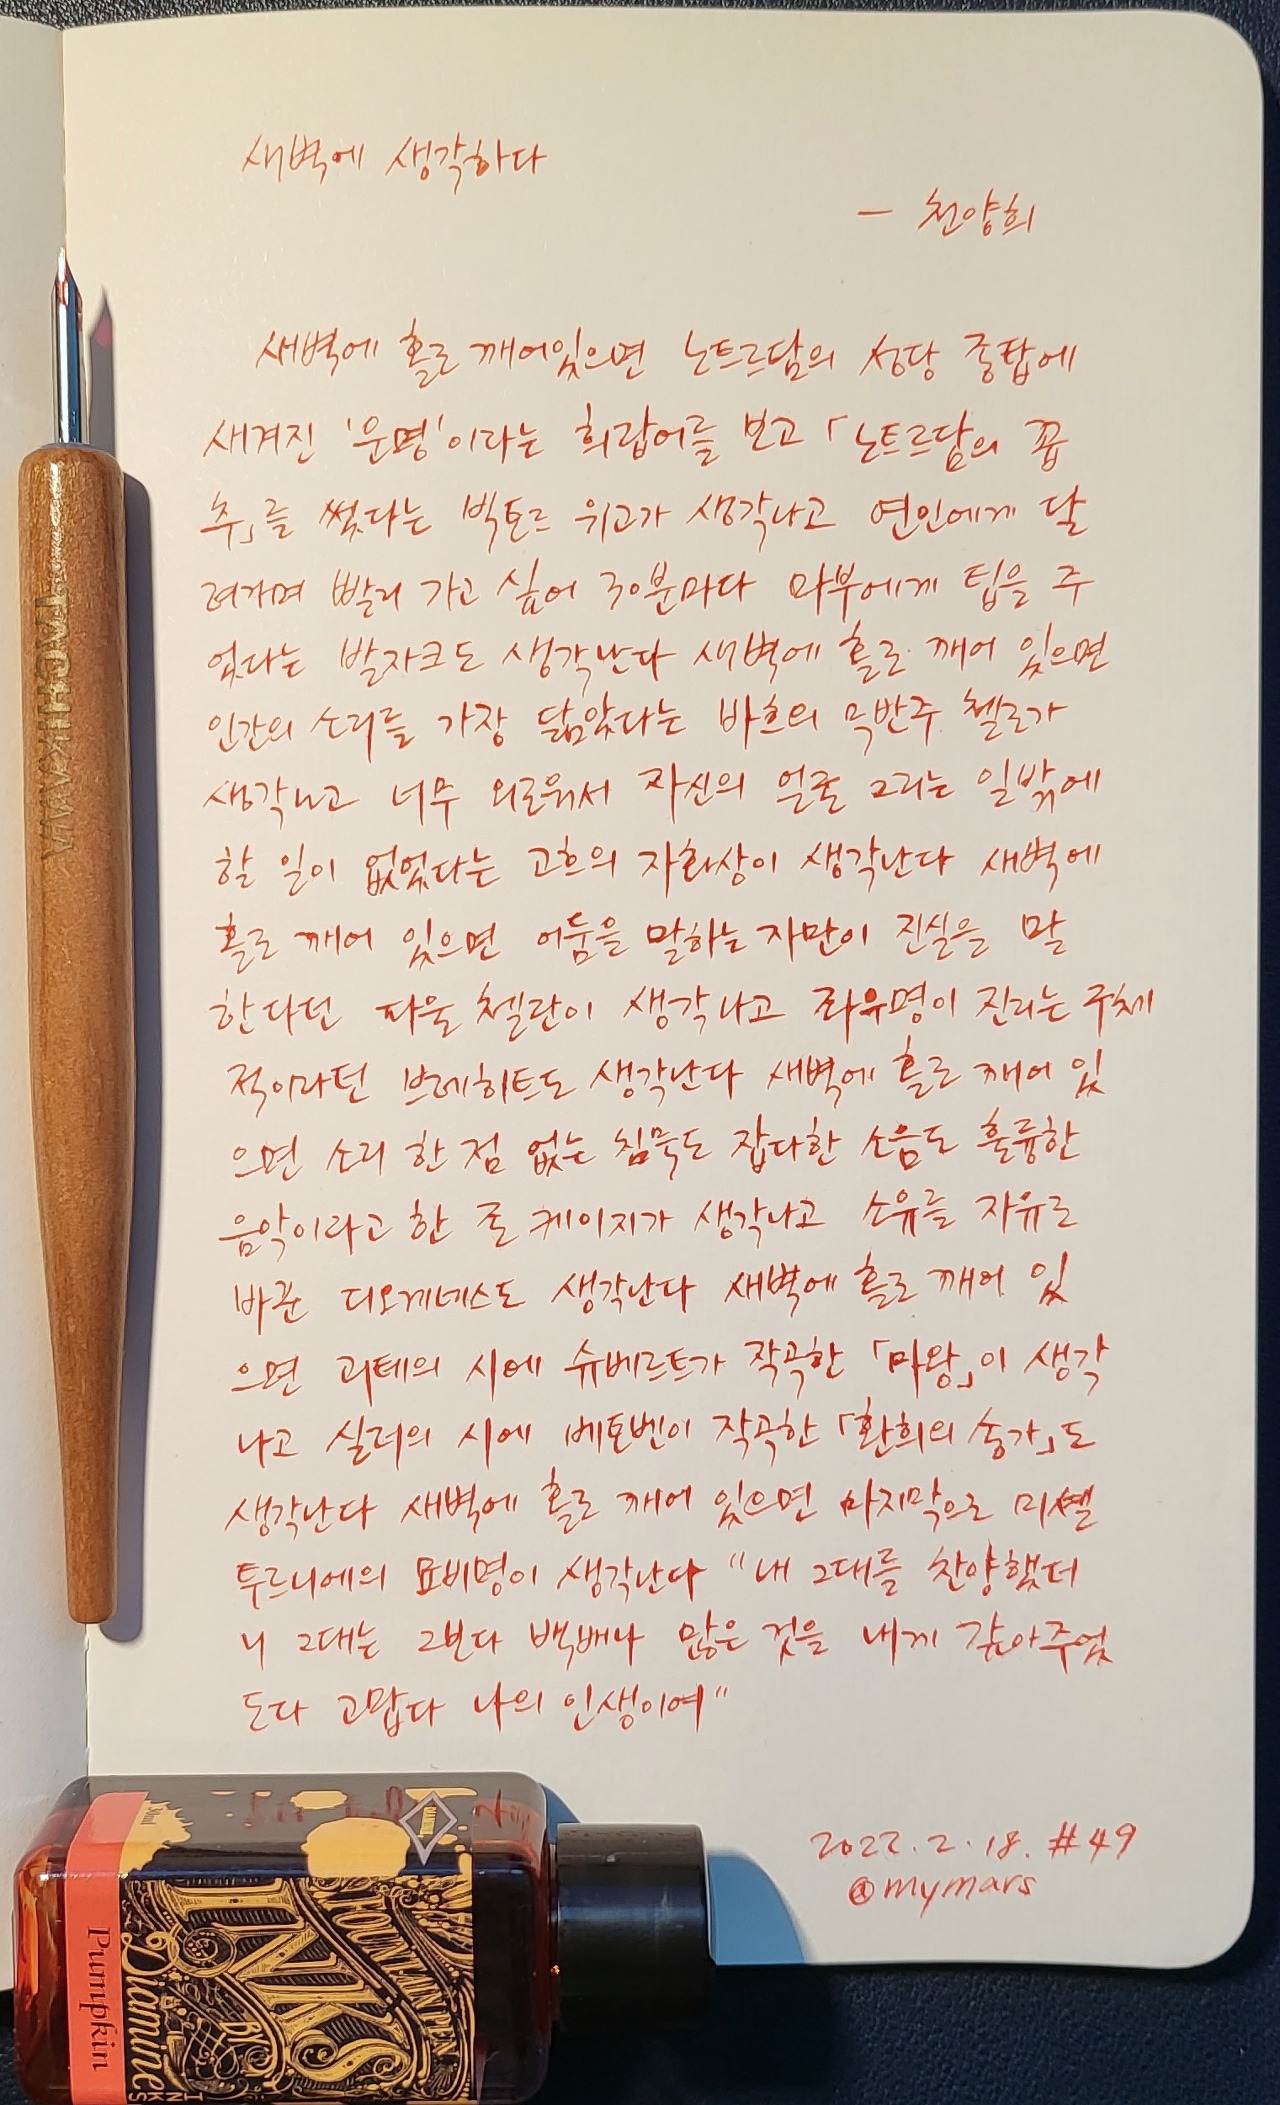 새벽에 생각하다
- 천양희
새벽에 홀로 깨어있으면 노트르담의 성당 종탑에
새겨진 '운명'이라는 희랍어를 보고 「노트르담의 꼽
추」를 썼다는 빅토르 위고가 생각나고 연인에게 달
려가며 빨리 가고 싶어 30분마다 마부에게 팁을 주
었다는 발자크도 생각난다 새벽에 홀로 깨어 있으면
인간의 소리를 가장 닮았다는 바흐의 무반주 첼로가
생각나고 너무 외로워서 자신의 얼굴 그리는 일밖에
할 일이 없었다는 고흐의 자화상이 생각난다 새벽에
홀로 깨어 있으면 어둠을 말하는 자만이 진실을 말
한다던 파울 첼란이 생각나고 좌우명이 진리는 구체
적이라던 브레히트도 생각난다 새벽에 홀로 깨어 있
으면 소리 한 점 없는 침묵도 잡다한 소음도 훌륭한
음악이라고 한 존 케이지가 생각나고 소유를 자유로
바꾼 디오게네스도 생각난다 새벽에 홀로 깨어 있
으면 괴테의 시에 슈베르트가 작곡한 「마왕」이 생각
나고 실러의 시에 베토벤이 작곡한 「환희의 송가」도
생각난다 새벽에 홀로 깨어 있으면 마지막으로 미셸
투르니에의 묘비명이 생각난다 "내 그대를 찬양했더
니 그대는 그보다 백배나 많은 것을 내게 갚아주었
도다 고맙다 나의 인생이여"
2022.2.18. #49
@mymars
TACHIKAWA
30ml
Pumpkin
Diamine
INKS
FOUNTAIN PEN
INKS
BY